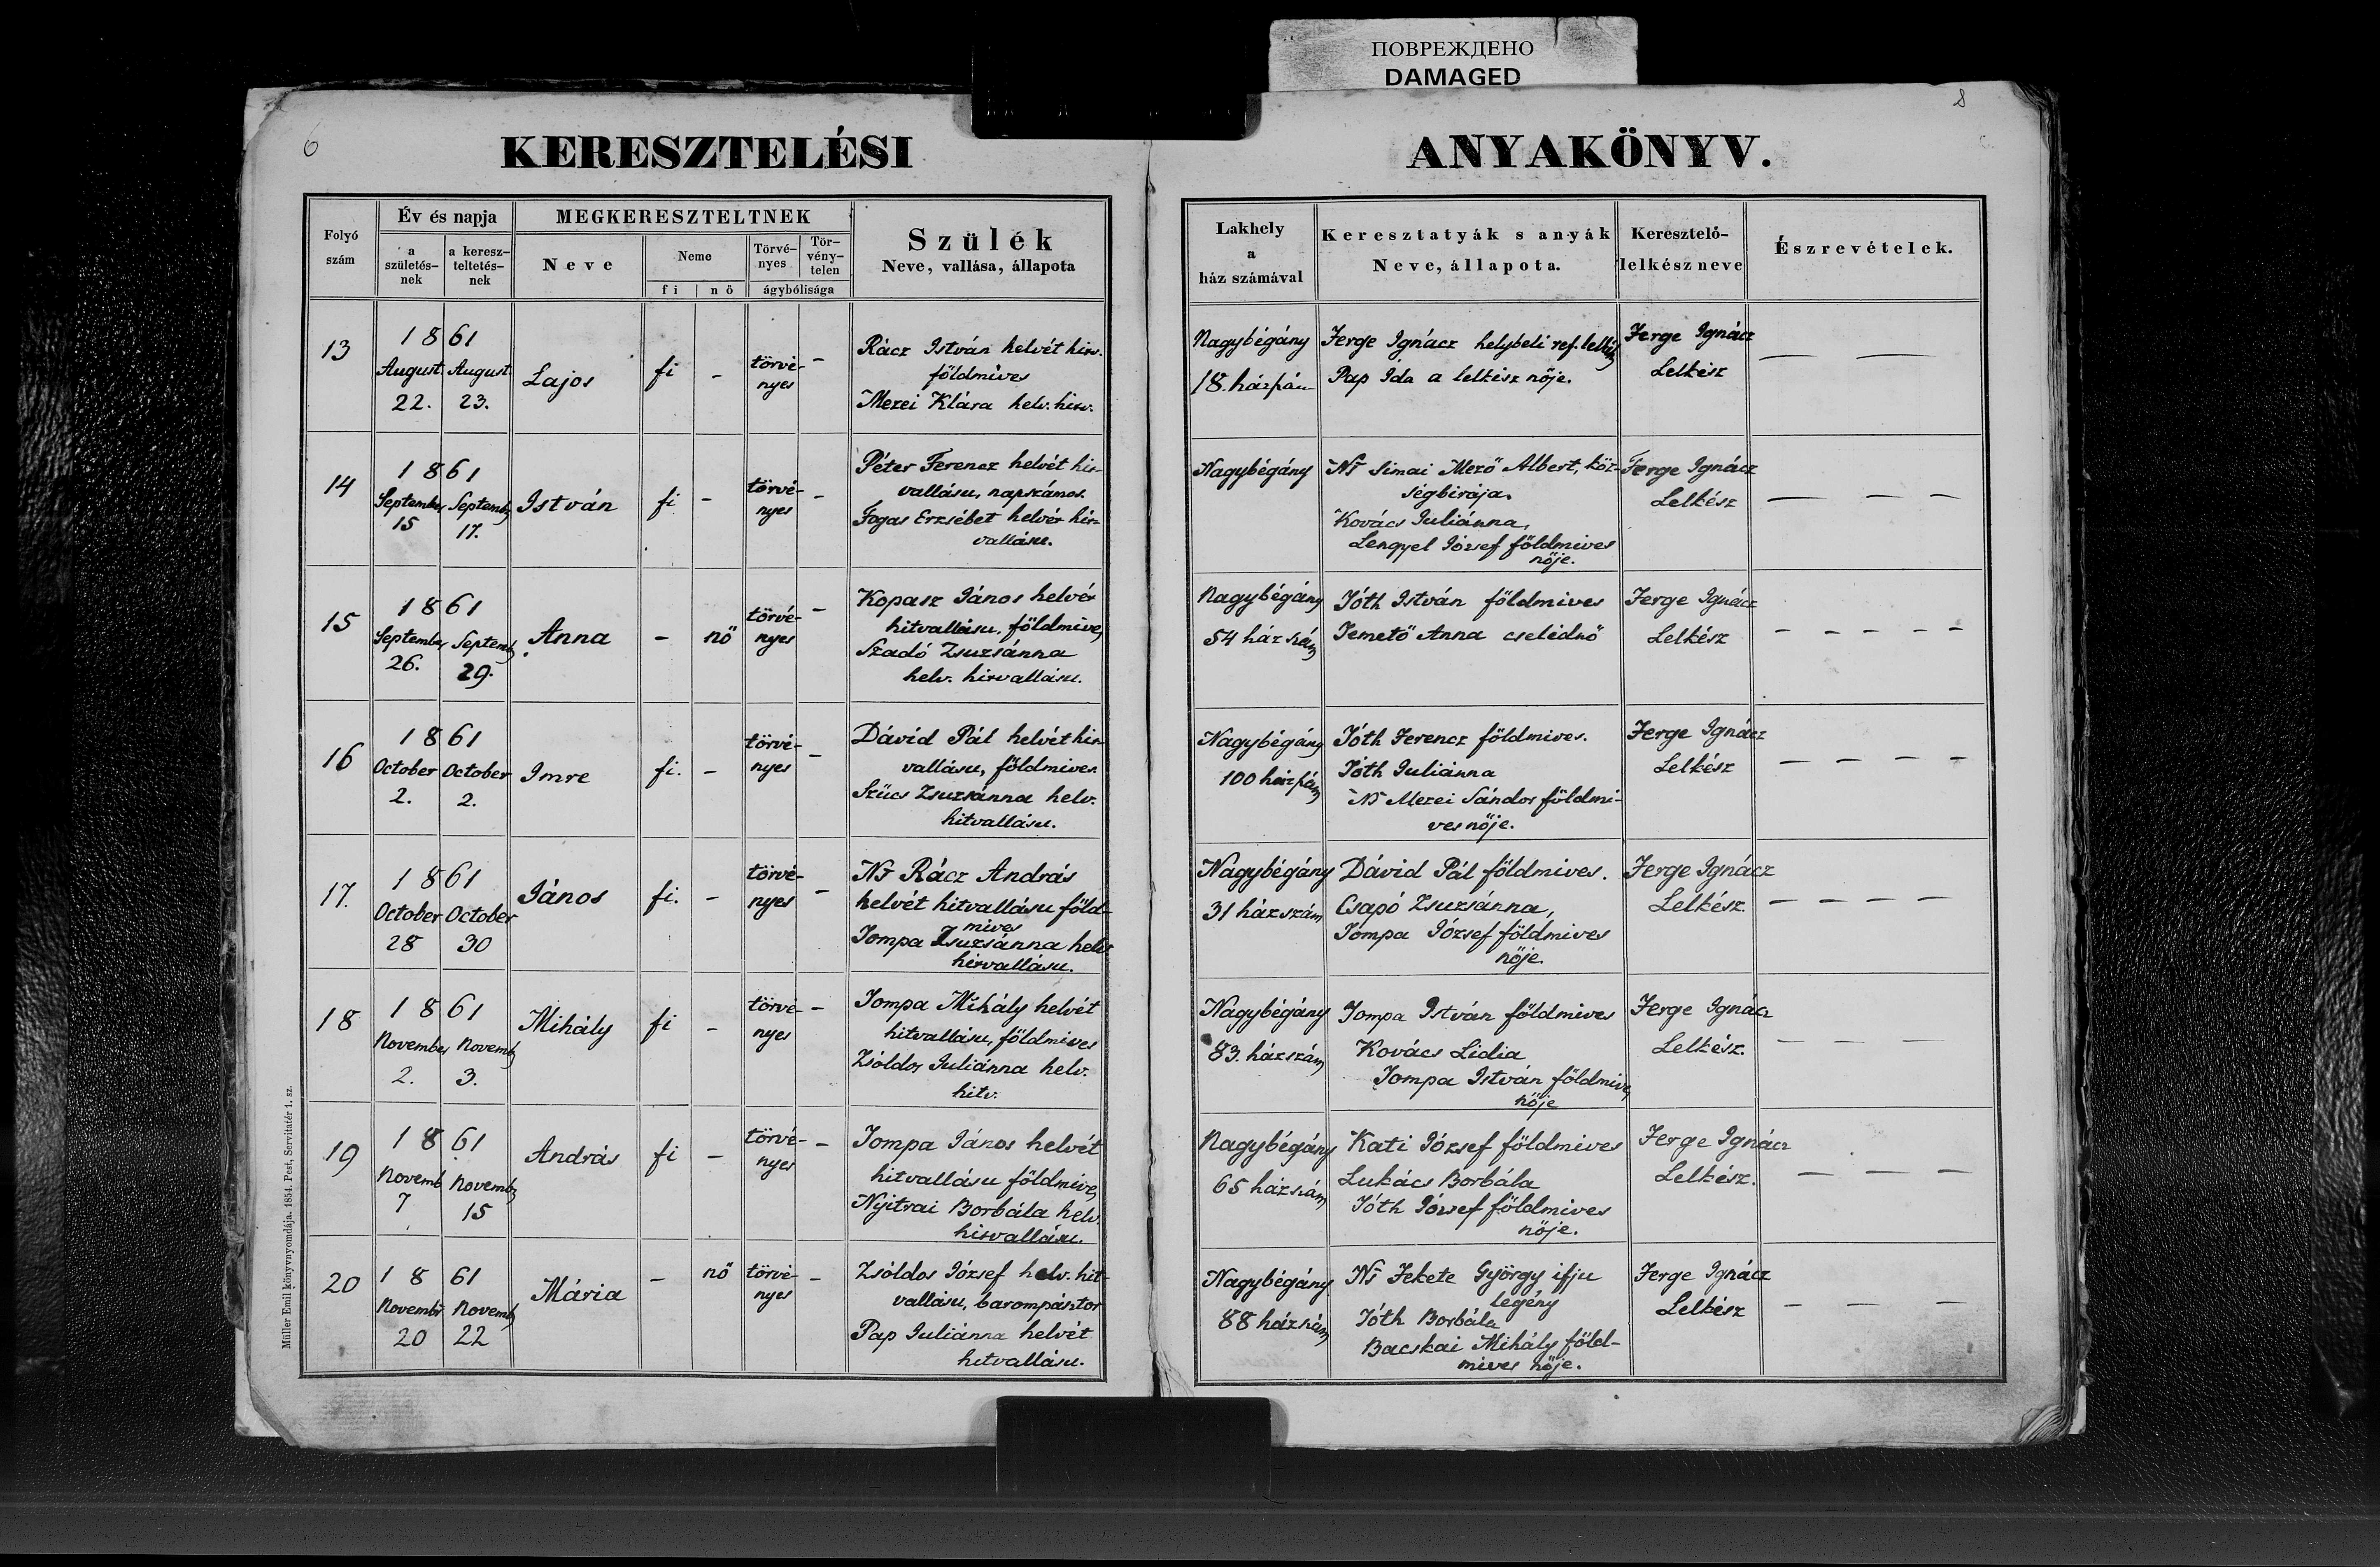 ПОВРЕЖДЕНО
DAMAGED
6
8
KERESZTELÉSI
ANYAKÖNYV.
Folyó szám
Év és napja
a születés-nek
a keresz-teltetés-nek
MEGKERESZTELTNEK
Neve
Neme
fi
nö
Törvé-nyes
Tör-vény-telen
ágybólisága
Szülék
Neve, vallása, állapota
Lakhely
a
ház számával
Keresztatyák s anyák
Neve, állapota.
Keresztelő-
lelkész neve
Észrevételek.
13
1861
August 22.
August 23.
Lajos
fi
-
törvé-
nyes
-
Rácz István helvét hitv.
földmives
Mezei Klára helv. hitv.
Nagybégány
18. házszám
Ferge Ignácz helybeli ref. lelkész
Pap Ida a lelkész nője.
Ferge Ignácz
Lelkész
— —
14
1861
September 15
Septemb 17.
István
fi
-
törvé-
nyes
-
Péter Ferencz helvét hit-
vallásu, napszámos.
Fogas Erzsébet helvét hit-
vallásu.
Nagybégány
Ns Simai Mező Albert, köz-
ségbirája.
Kovács Juliánna,
Lengyel József földmives
nője.
Ferge Ignácz
Lelkész
— — —
15
1861
September 26.
Septemb 29.
Anna
-
nő
törvé-
nyes
-
Kopasz János helvét
hitvallásu, földmives
Szadó Zsuzsánna
helv. hitvallásu.
Nagybégány
54 házszám
Tóth István földmives
Temető Anna cselédnő
Ferge Ignácz
Lelkész
- - - - -
16
1861
October 2.
October 2.
Imre
fi.
-
törvé-
nyes
-
Dávid Pál helvét hit-
vallásu, földmives
Szücs Zsuzsánna helv.
hitvallásu.
Nagybégány
100 házszám
Tóth Ferencz földmives.
Tóth Juliánna
Ns Mezei Sándor földmi-
ves nője.
Ferge Ignácz
Lelkész
— — — —
17.
1861
October 28
October 30
János
fi.
-
törvé-
nyes
-
Ns Rácz András
helvét hitvallásu föld-
mives
Tompa Zsuzsánna helv
hitvallásu.
Nagybégány
31 házszám
Dávid Pál földmives.
Csapó Zsuzsánna,
Tompa József földmives
nője.
Ferge Ignácz
Lelkész.
— — — —
18
1861
November 2.
Novemb 3.
Mihály
fi
-
törvé-
nyes
-
Tompa Mihály helvét
hitvallásu, földmives
Zsóldos Juliánna helv.
hitv.
Nagybégány
83. házszám
Tompa István földmives
Kovács Lidia
Tompa István földmives
nője
Ferge Ignácz
Lelkész.
— — —
19
1861
Novemb 7
Novemb 15
András
fi
-
törvé-
nyes
-
Tompa János helvét
hitvallásu földmives
Nyitrai Borbála helv.
hitvallásu.
Nagybégány
65 házszám
Kati József földmives
Lukács Borbála
Tóth József földmives
nője.
Ferge Ignácz
Lelkész.
— — — —
20
1861
Novemb 20
Novemb 22
Mária
-
nő
törvé-
nyes
-
Zsóldos József helv. hit-
vallásu, barompásztor
Pap Juliánna helvét
hitvallásu.
Nagybégány
88 házszám
Ns Fekete György ifju
legény
Tóth Borbála
Bacskai Mihály föld-
mives nője.
Ferge Ignácz
Lelkész
— — —
Müller Emil könyvnyomdája. 1854. Pest, Servitatér 1. sz.